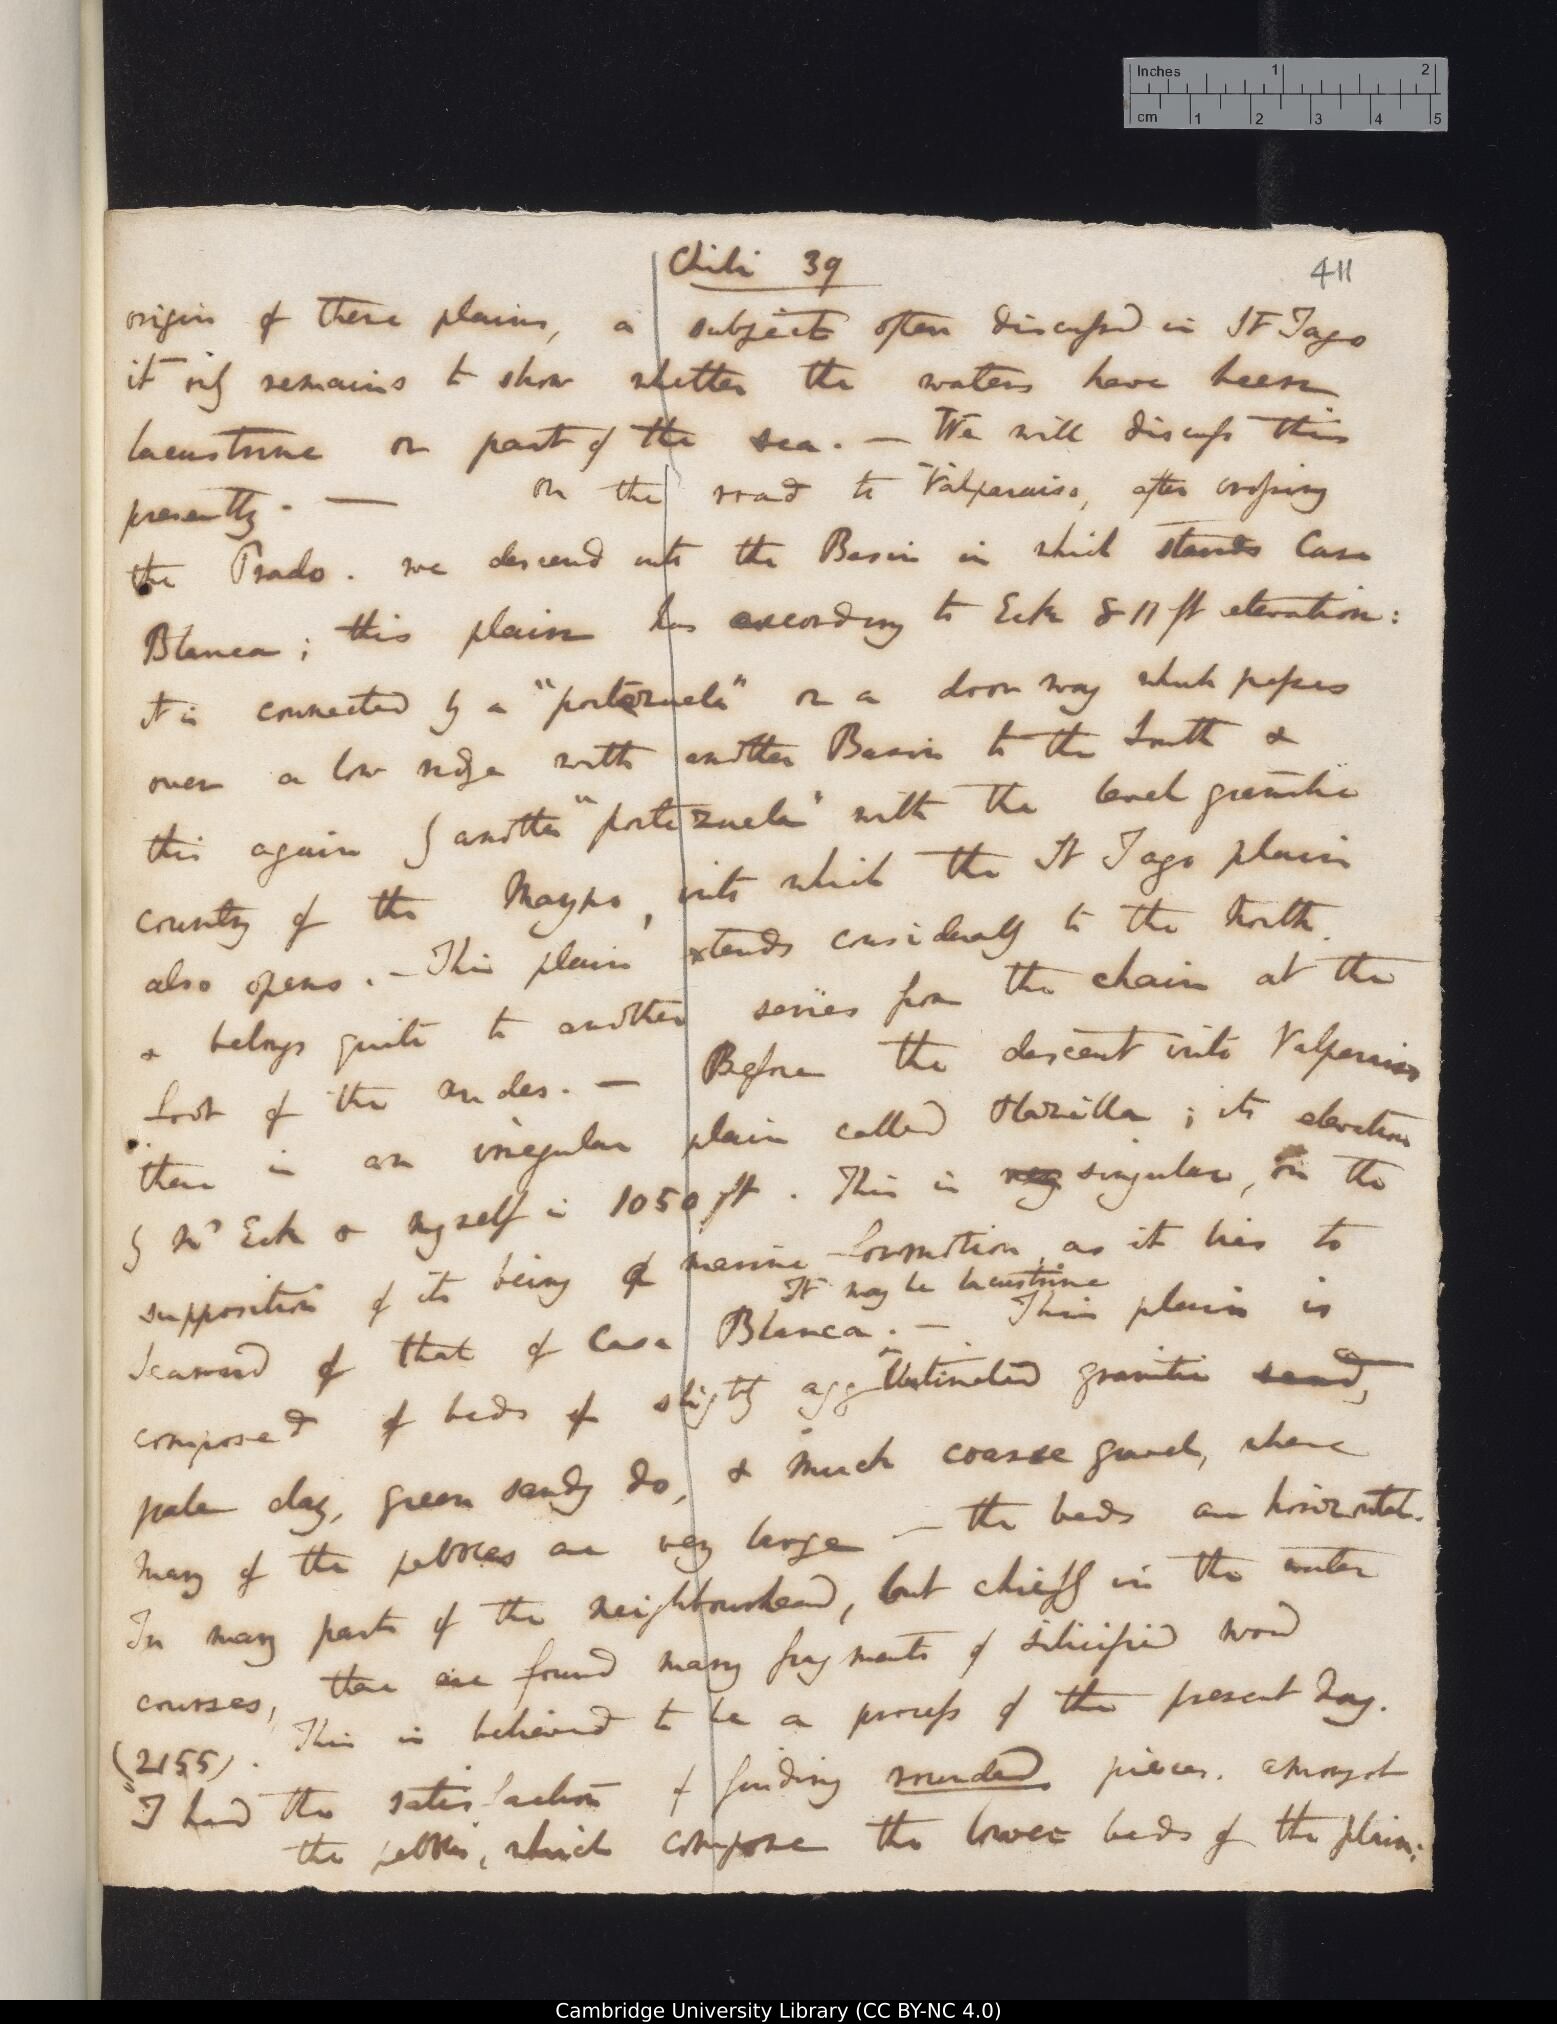 Inches 1 2
cm 1 2 3 4 5
Chili 39
411
origin of these plains, a subject often discussed in St Jago
it only remains to show whether the waters have been
lacustrine or part of the sea. — We will discuss this
presently. — On the road to Valparaiso, after crossing
the Prado. we descend into the Basin in which stands Casa
Blanca; this plain has according to Eck 811 ft elevation:
it is connected by a "portezuela" or a door way which passes
over a low ridge with another Basin to the South &
this again by another "portezuela" with the level granitic
country of the Maypo, into which the St Jago plain
also opens. — This plain xtends considerably to the North.
& belongs quite to another series from the chain at the
foot of the Andes. — Before the descent into Valparaiso
there is an irregular plain called Hazilla; its elevation
by Mr Eck & myself is 1050 ft. This is very singular, on the
supposition of its being of marine formation, as it lies to
It may be lacustrine
Seaward of that of Casa Blanca. — This plain is
composed of beds of slightly agglutinated granitic sand,
pale clay, green sandy do, & much coarse gravel, where
many of the pebbles are very large — the beds are horizontal.
In many parts of the neighbourhead, but chiefly in the water
courses, there are found many fragments of silicified wood
(2155). This is believed to be a process of the present day.
I had the satisfaction of finding rounded pieces. amongst
the pebbles, which compose the lower beds of the plain;
Cambridge University Library (CC BY-NC 4.0)